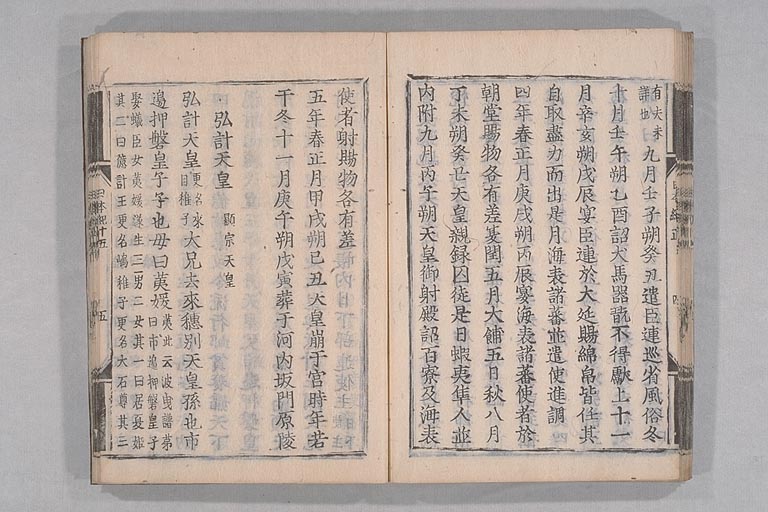 有夫未
詳也 九月壬子朔癸丑遣臣連巡省風俗冬
十月壬午朔乙酉詔犬馬器翫不得獻上十一
月辛亥朔戊辰宴臣連於大延賜綿帛皆任其
自取盡力而出是月海表諸蕃並遣使進調
四年春正月庚戌朔丙辰宴海表諸蕃使者於
朝堂賜物各有差夏閏五月大餔五日秋八月
丁未朔癸亡天皇親録囚徒是日蝦夷隼人並
內附九月丙午朔天皇御射殿詔百寮及海表
使者射賜物各有差
五年春正月甲戌朔己丑天皇崩于宮時年若
干冬十一月庚午朔戊寅葬于河內坂門原陵
弘計天皇 顯宗天皇
弘計天皇 更名來
目稚子 大兄去來穗別天皇孫也市
邊押磐皇子子也母曰荑媛 荑此云波曳譜第
曰市邊押磐皇子
娶蟻臣女荑媛遂生三男二女其一曰居夏姬
其二曰億計王更名嶋稚子更名大石尊其三
日本紀十五 五